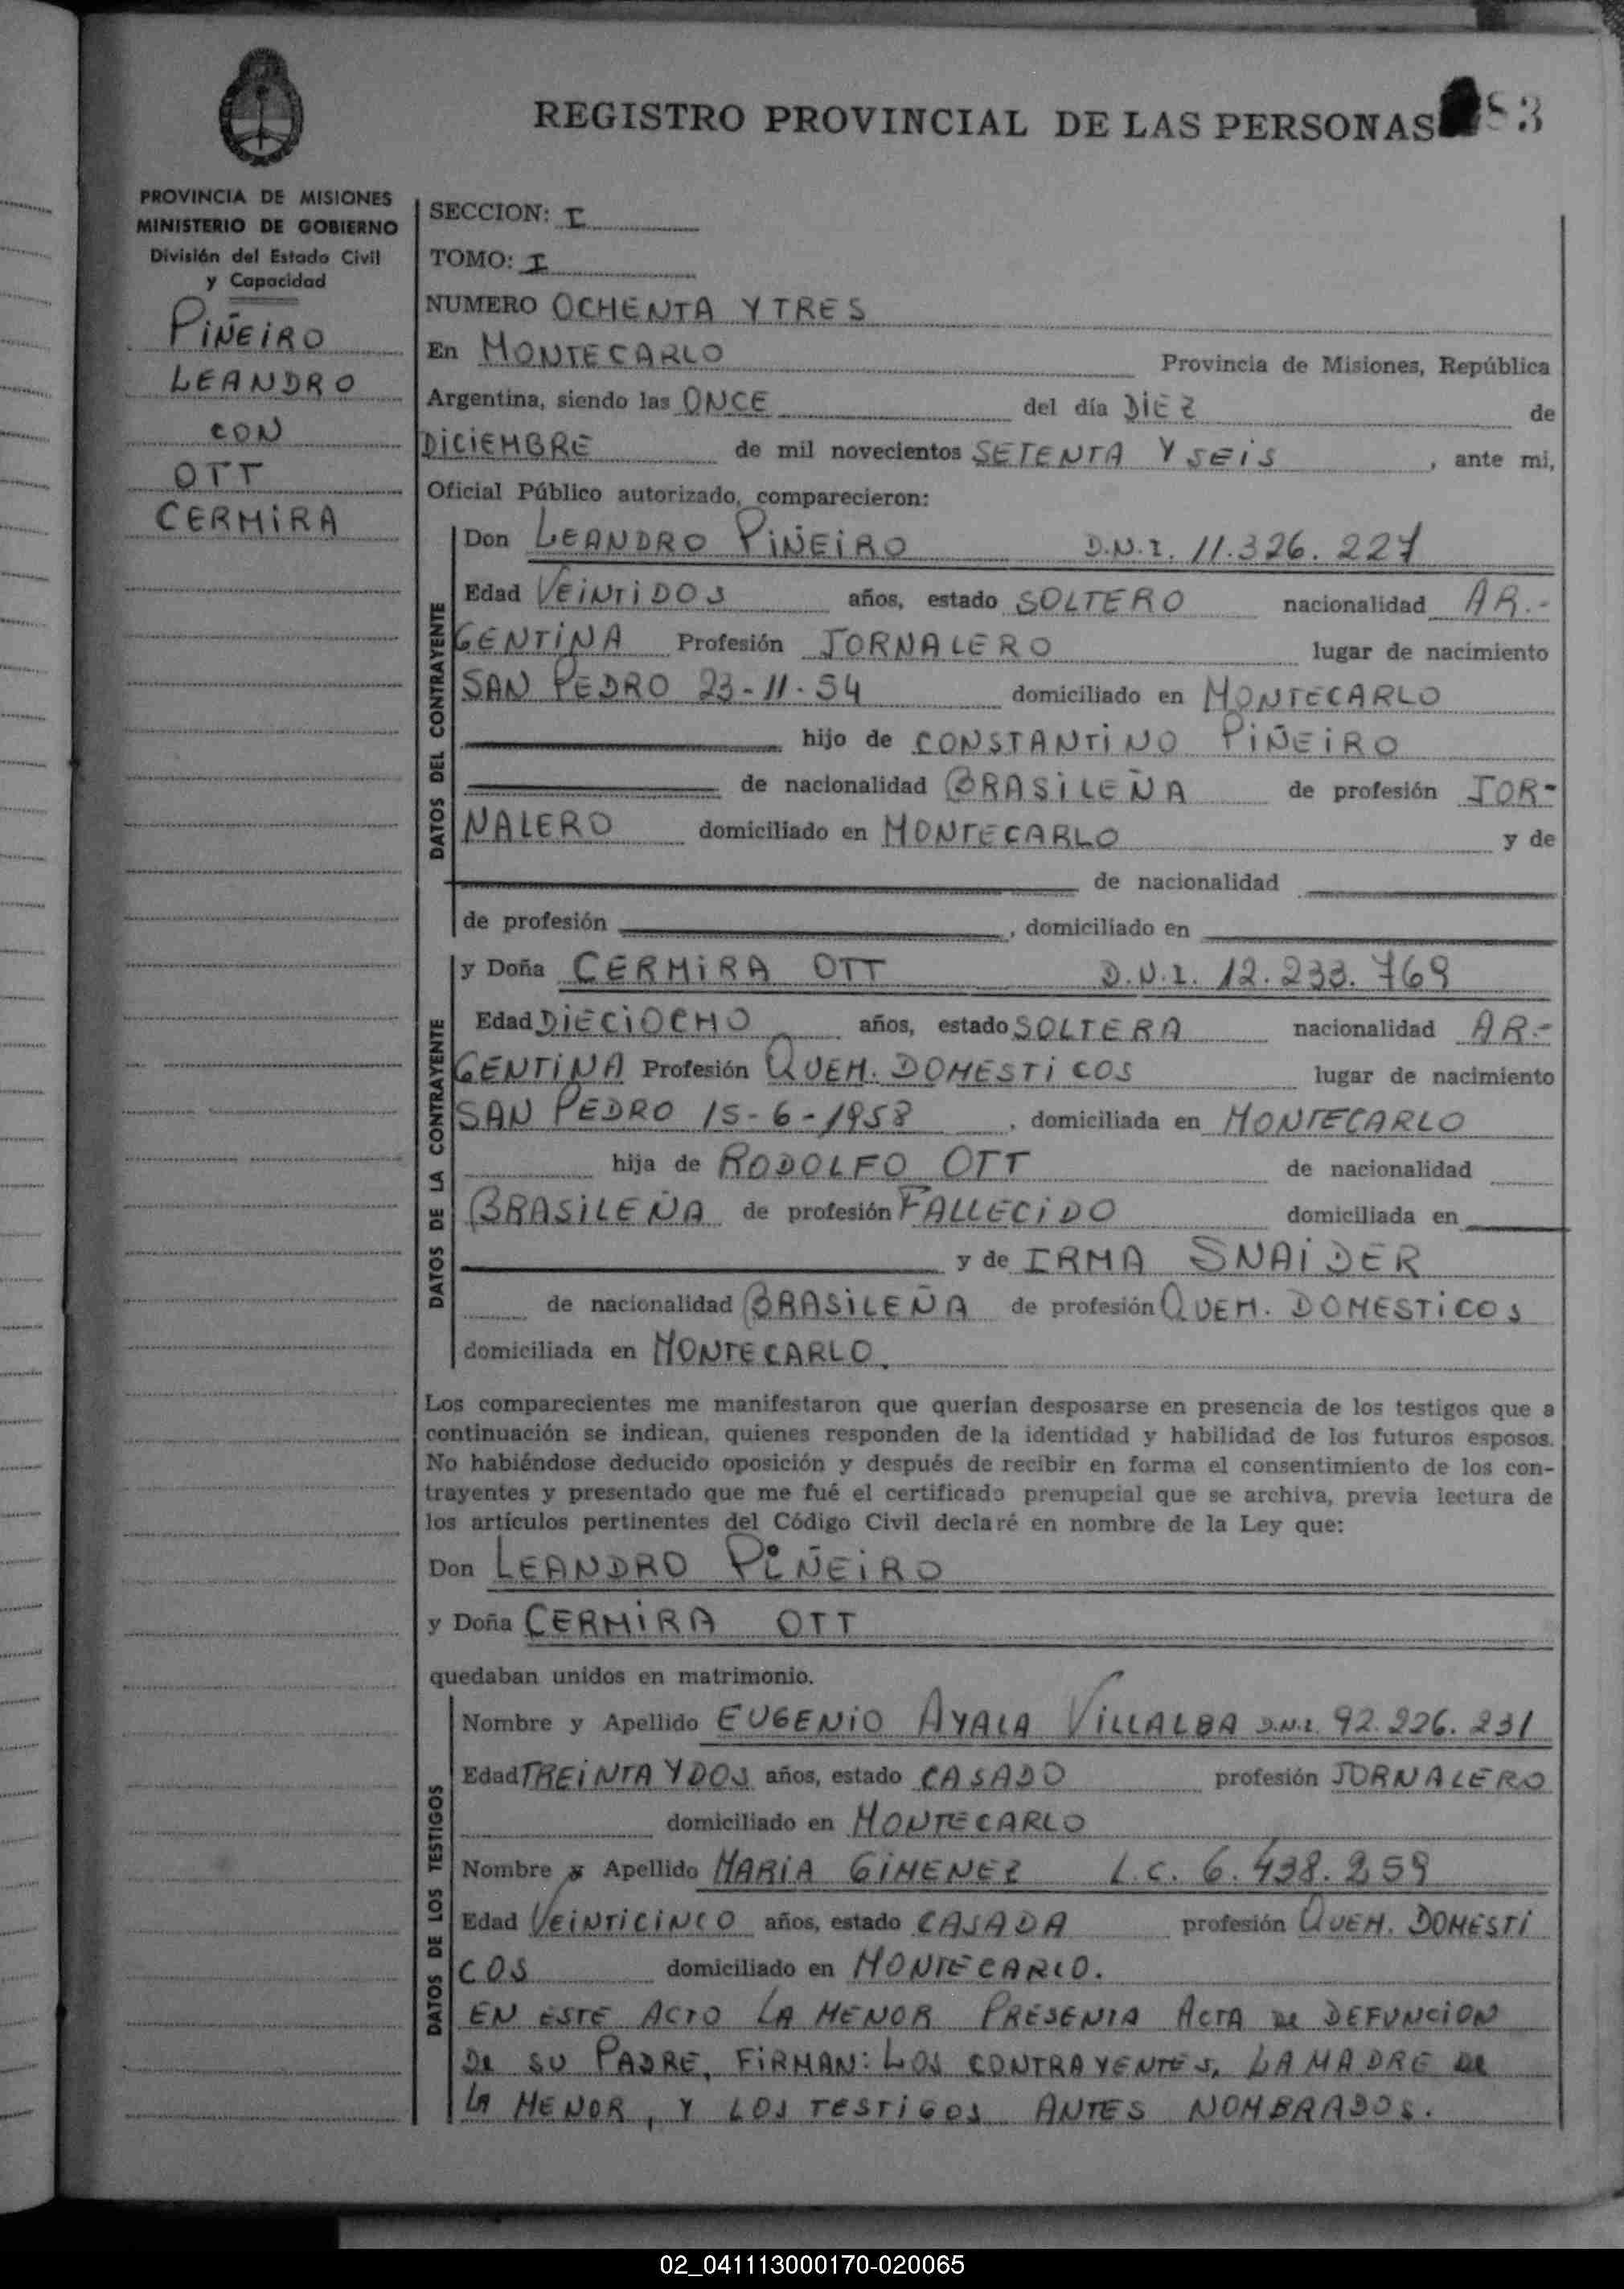 REGISTRO PROVINCIAL DE LAS PERSONAS 83
PROVINCIA DE MISIONES
MINISTERIO DE GOBIERNO
División del Estado Civil
y Capacidad
PIÑEIRO
LEANDRO
CON
OTT
CERMIRA
SECCION: I
TOMO: I
NUMERO OCHENTA Y TRES
En MONTECARLO Provincia de Misiones, República
Argentina, siendo las ONCE del día DIEZ de
DICIEMBRE de mil novecientos SETENTA Y SEIS, ante mi,
Oficial Público autorizado, comparecieron:
DATOS DEL CONTRAYENTE
Don LEANDRO PIÑEIRO D.N.I. 11.326.227
Edad VEINTIDOS años, estado SOLTERO nacionalidad AR.-
GENTINA Profesión JORNALERO lugar de nacimiento
SAN PEDRO 23-11-54 domiciliado en MONTECARLO
hijo de CONSTANTINO PIÑEIRO
de nacionalidad BRASILEÑA de profesión JOR-
NALERO domiciliado en MONTECARLO y de
de nacionalidad
de profesión , domiciliado en
DATOS DE LA CONTRAYENTE
y Doña CERMIRA OTT D.N.I. 12.233.769
Edad DIECIOCHO años, estado SOLTERA nacionalidad AR.-
GENTINA Profesión QUEH. DOMESTICOS lugar de nacimiento
SAN PEDRO 15-6-1958, domiciliada en MONTECARLO
hija de RODOLFO OTT de nacionalidad
BRASILEÑA de profesión FALLECIDO domiciliada en
y de IRMA SNAIDER
de nacionalidad BRASILEÑA de profesión QUEH. DOMESTICOS
domiciliada en MONTECARLO.
Los comparecientes me manifestaron que querían desposarse en presencia de los testigos que a
continuación se indican, quienes responden de la identidad y habilidad de los futuros esposos.
No habiéndose deducido oposición y después de recibir en forma el consentimiento de los con-
trayentes y presentado que me fué el certificado prenupcial que se archiva, previa lectura de
los artículos pertinentes del Código Civil declaré en nombre de la Ley que:
Don LEANDRO PIÑEIRO
y Doña CERMIRA OTT
quedaban unidos en matrimonio.
DATOS DE LOS TESTIGOS
Nombre y Apellido EUGENIO AYALA VILLALBA D.N.I. 92.226.231
Edad TREINTA Y DOS años, estado CASADO profesión JORNALERO
domiciliado en MONTECARLO
Nombre y Apellido MARIA GIMENEZ L.C. 6.438.259
Edad VEINTICINCO años, estado CASADA profesión QUEH. DOMESTI
COS domiciliado en MONTECARLO.
EN ESTE ACTO LA MENOR PRESENTA ACTA DE DEFUNCION
DE SU PADRE, FIRMAN: LOS CONTRAYENTES, LA MADRE DE
LA MENOR, Y LOS TESTIGOS ANTES NOMBRADOS.
02_041113000170-020065